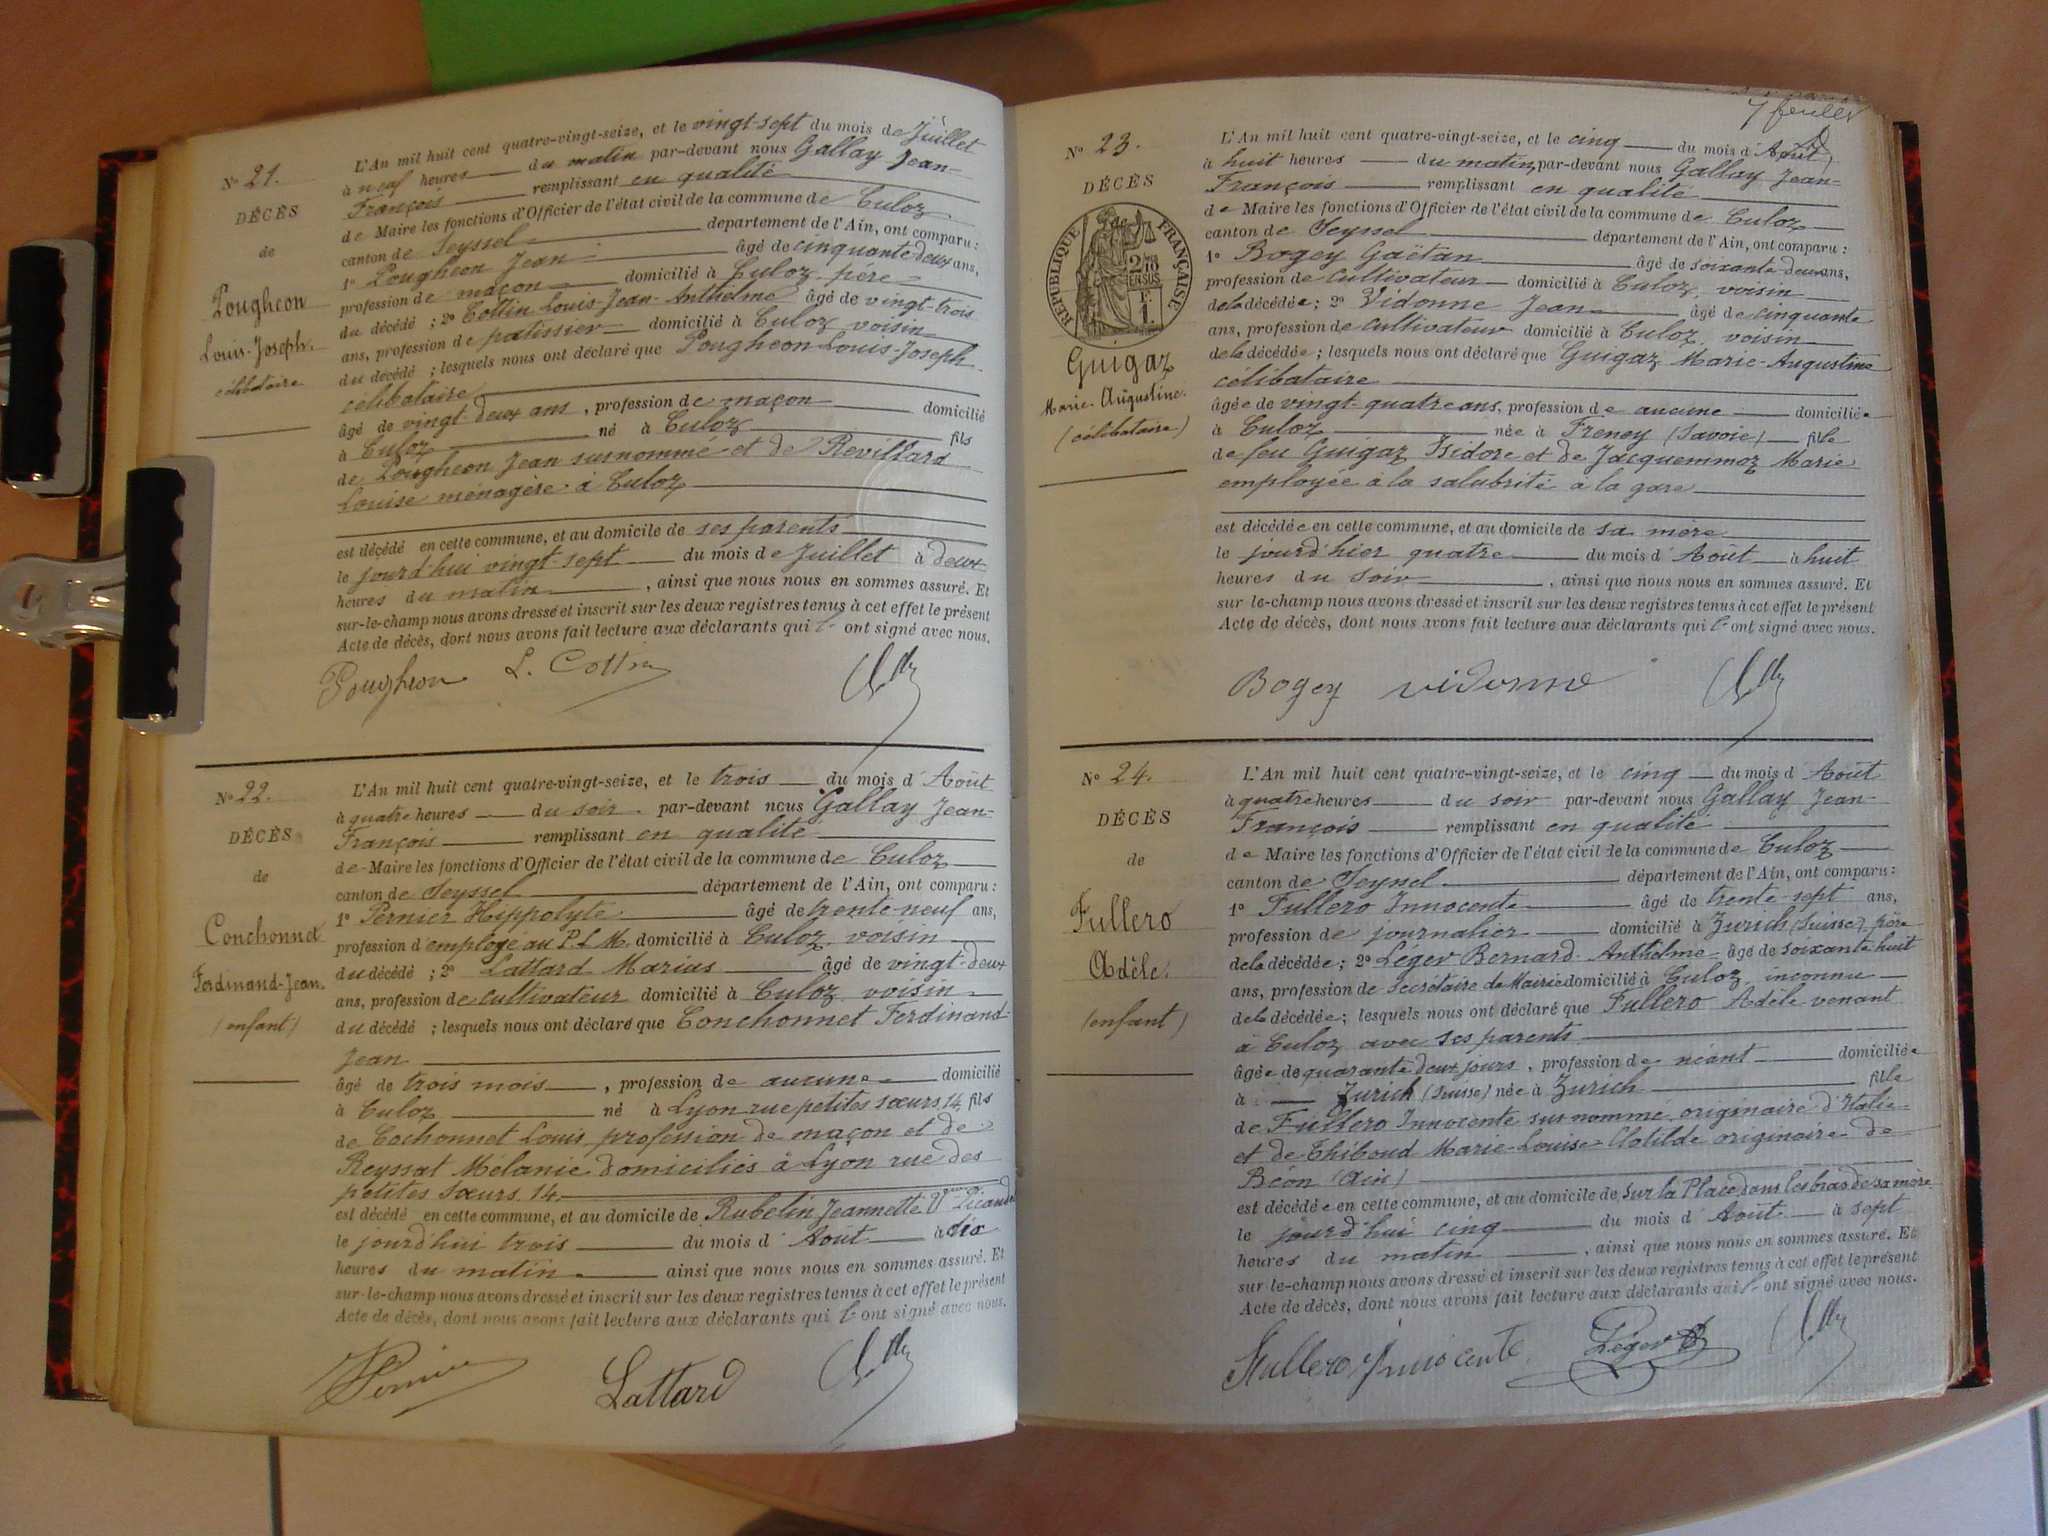 N° 21.
DÉCÈS
de
Pougheon
Louis-Joseph.
célibataire
L'An mil huit cent quatre-vingt-seize, et le vingt-sept du mois de Juillet
à neuf heures du matin par-devant nous Gallay Jean-
François remplissant en qualité
de Maire les fonctions d'Officier de l'état civil de la commune de Culoz
canton de Seyssel département de l'Ain, ont comparu :
1° Pougheon Jean âgé de cinquante deux ans,
profession de maçon domicilié à Culoz, père
du décédé ; 2° Cottin Louis-Jean-Anthelme âgé de vingt-trois
ans, profession de patissier domicilié à Culoz voisin
du décédé ; lesquels nous ont déclaré que Pougheon Louis-Joseph
célibataire
âgé de vingt-deux ans, profession de maçon domicilié
à Culoz né à Culoz fils
de Pougheon Jean susnommé et de Revillard
Louise ménagère à Culoz
est décédé en cette commune, et au domicile de ses parents
le jourd'hui vingt-sept du mois de Juillet à deux
heures du matin, ainsi que nous nous en sommes assuré. Et
sur-le-champ nous avons dressé et inscrit sur les deux registres tenus à cet effet le présent
Acte de décès, dont nous avons fait lecture aux déclarants qui l' ont signé avec nous.
Pougheon L. Cottin
N° 22.
DÉCÈS
de
Conchonnet
Ferdinand-Jean.
(enfant)
L'An mil huit cent quatre-vingt-seize, et le trois du mois d'Août
à quatre heures du soir par-devant nous Gallay Jean-
François remplissant en qualité
de Maire les fonctions d'Officier de l'état civil de la commune de Culoz
canton de Seyssel département de l'Ain, ont comparu :
1° Pernier Hippolyte âgé de trente-neuf ans,
profession d'employé au P.L.M. domicilié à Culoz, voisin
du décédé ; 2° Lattard Marius âgé de vingt-deux
ans, profession de cultivateur domicilié à Culoz voisin
du décédé ; lesquels nous ont déclaré que Conchonnet Ferdinand-
Jean
âgé de trois mois, profession de aucune domicilié
à Culoz né à Lyon rue petites sœurs, 14, fils
de Cochonnet Louis, profession de maçon et de
Reyssat Mélanie domiciliés à Lyon rue des
petites sœurs, 14.
est décédé en cette commune, et au domicile de Rubelin Jeannette Vve
le jourd'hui trois du mois d'Août à dix
heures du matin ainsi que nous nous en sommes assuré. Et
sur-le-champ nous avons dressé et inscrit sur les deux registres tenus à cet effet le présent
Acte de décès, dont nous avons fait lecture aux déclarants qui l' ont signé avec nous.
Lattard
7 feuillet
N° 23.
DÉCÈS
de
RÉPUBLIQUE FRANÇAISE
Guigaz
Marie-Augustine.
(célibataire)
L'An mil huit cent quatre-vingt-seize, et le cinq du mois d'Août
à huit heures du matin, par-devant nous Gallay Jean-
François remplissant en qualité
de Maire les fonctions d'Officier de l'état civil de la commune de Culoz
canton de Seyssel département de l'Ain, ont comparu :
1° Bogey Gaëtan âgé de soixante-deux ans,
profession de cultivateur domicilié à Culoz, voisin
de la décédée ; 2° Vidonne Jean âgé de cinquante
ans, profession de cultivateur domicilié à Culoz, voisin
de la décédée ; lesquels nous ont déclaré que Guigaz Marie-Augustine
célibataire
âgée de vingt-quatre ans, profession de aucune domiciliée
à Culoz née à Freney (Savoie) fille
de feu Guigaz Isidore et de Jacquemmoz Marie
employée à la salubrité à la gare
est décédée en cette commune, et au domicile de sa mère
le jourd'hier quatre du mois d'Août à huit
heures du soir, ainsi que nous nous en sommes assuré. Et
sur-le-champ nous avons dressé et inscrit sur les deux registres tenus à cet effet le présent
Acte de décès, dont nous avons fait lecture aux déclarants qui l' ont signé avec nous.
Bogey vidonne
N° 24.
DÉCÈS
de
Fullero
Adèle.
(enfant)
L'An mil huit cent quatre-vingt-seize, et le cinq du mois d'Août
à quatre heures du soir par-devant nous Gallay Jean-
François remplissant en qualité
de Maire les fonctions d'Officier de l'état civil de la commune de Culoz
canton de Seyssel département de l'Ain, ont comparu :
1° Fullero Innocente âgé de trente-sept ans,
profession de journalier domicilié à Zurich (Suisse), père
de la décédée ; 2° Léger Bernard-Anthelme âgé de soixante-huit
ans, profession de Secrétaire de Mairie domicilié à Culoz, inconnu
de la décédée ; lesquels nous ont déclaré que Fullero Adèle venant
à Culoz avec ses parents
âgée de quarante-deux jours, profession de néant domiciliée
à Zurich (Suisse) née à Zurich fille
de Fullero Innocente susnommé originaire d'Italie
et de Thiboud Marie-Louise-Clotilde originaire de
Béon (Ain)
est décédée en cette commune, et au domicile de, sur la Place, dans les bras de sa mère
le jourd'hui cinq du mois d'Août à sept
heures du matin, ainsi que nous nous en sommes assuré. Et
sur-le-champ nous avons dressé et inscrit sur les deux registres tenus à cet effet le présent
Acte de décès, dont nous avons fait lecture aux déclarants qui l' ont signé avec nous.
Léger